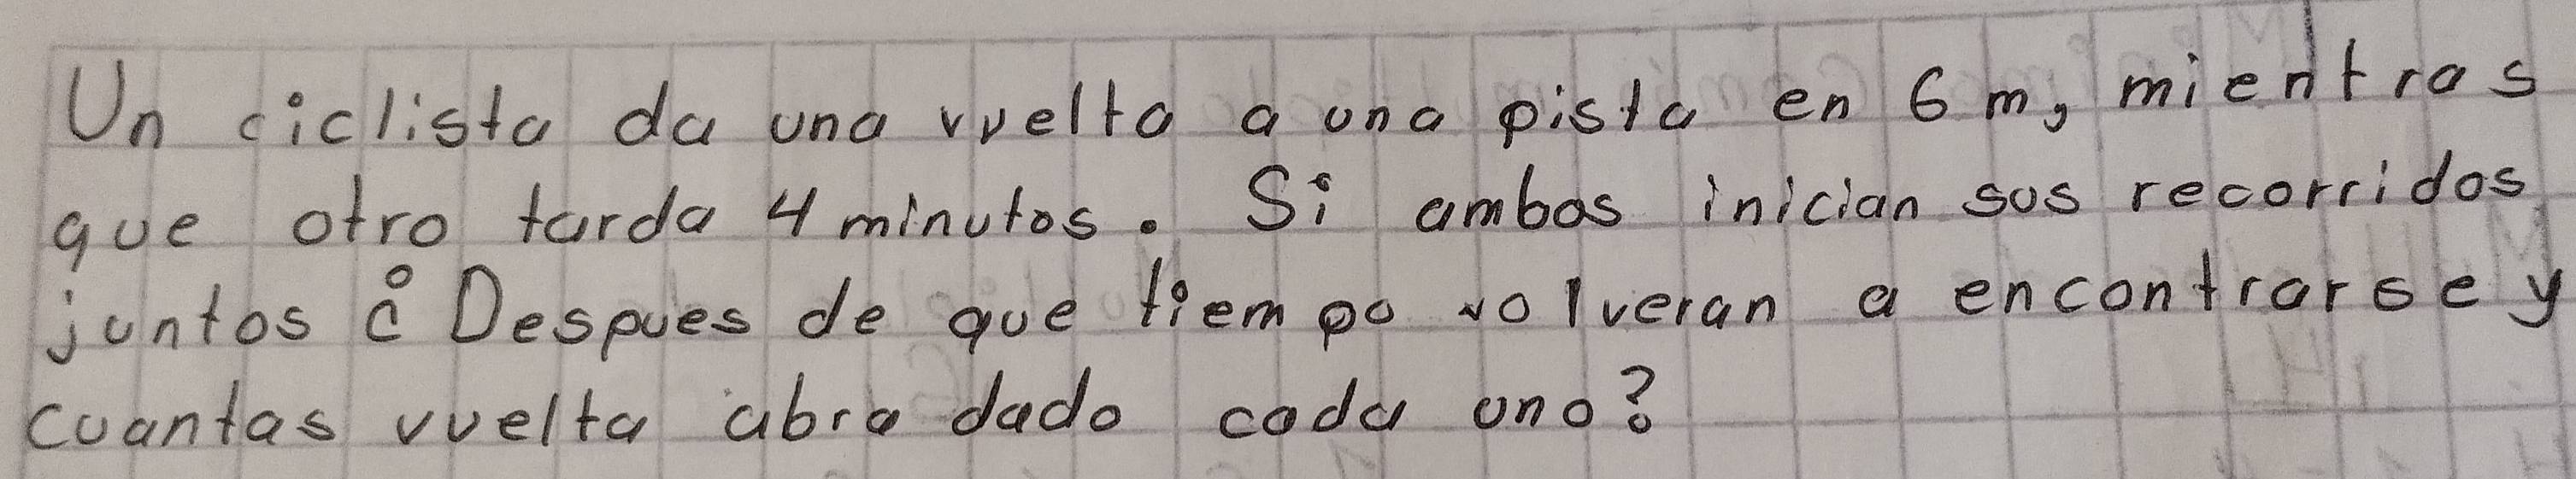 Un ciclista da una vuelta a una pista en 6 m, mientras
que otro tarda 4 minutos. Si ambos inician sus recorridos
juntos ¿Despues de que tiempo volveran a encontrarse y
cuantas vuelta abra dado cada uno?